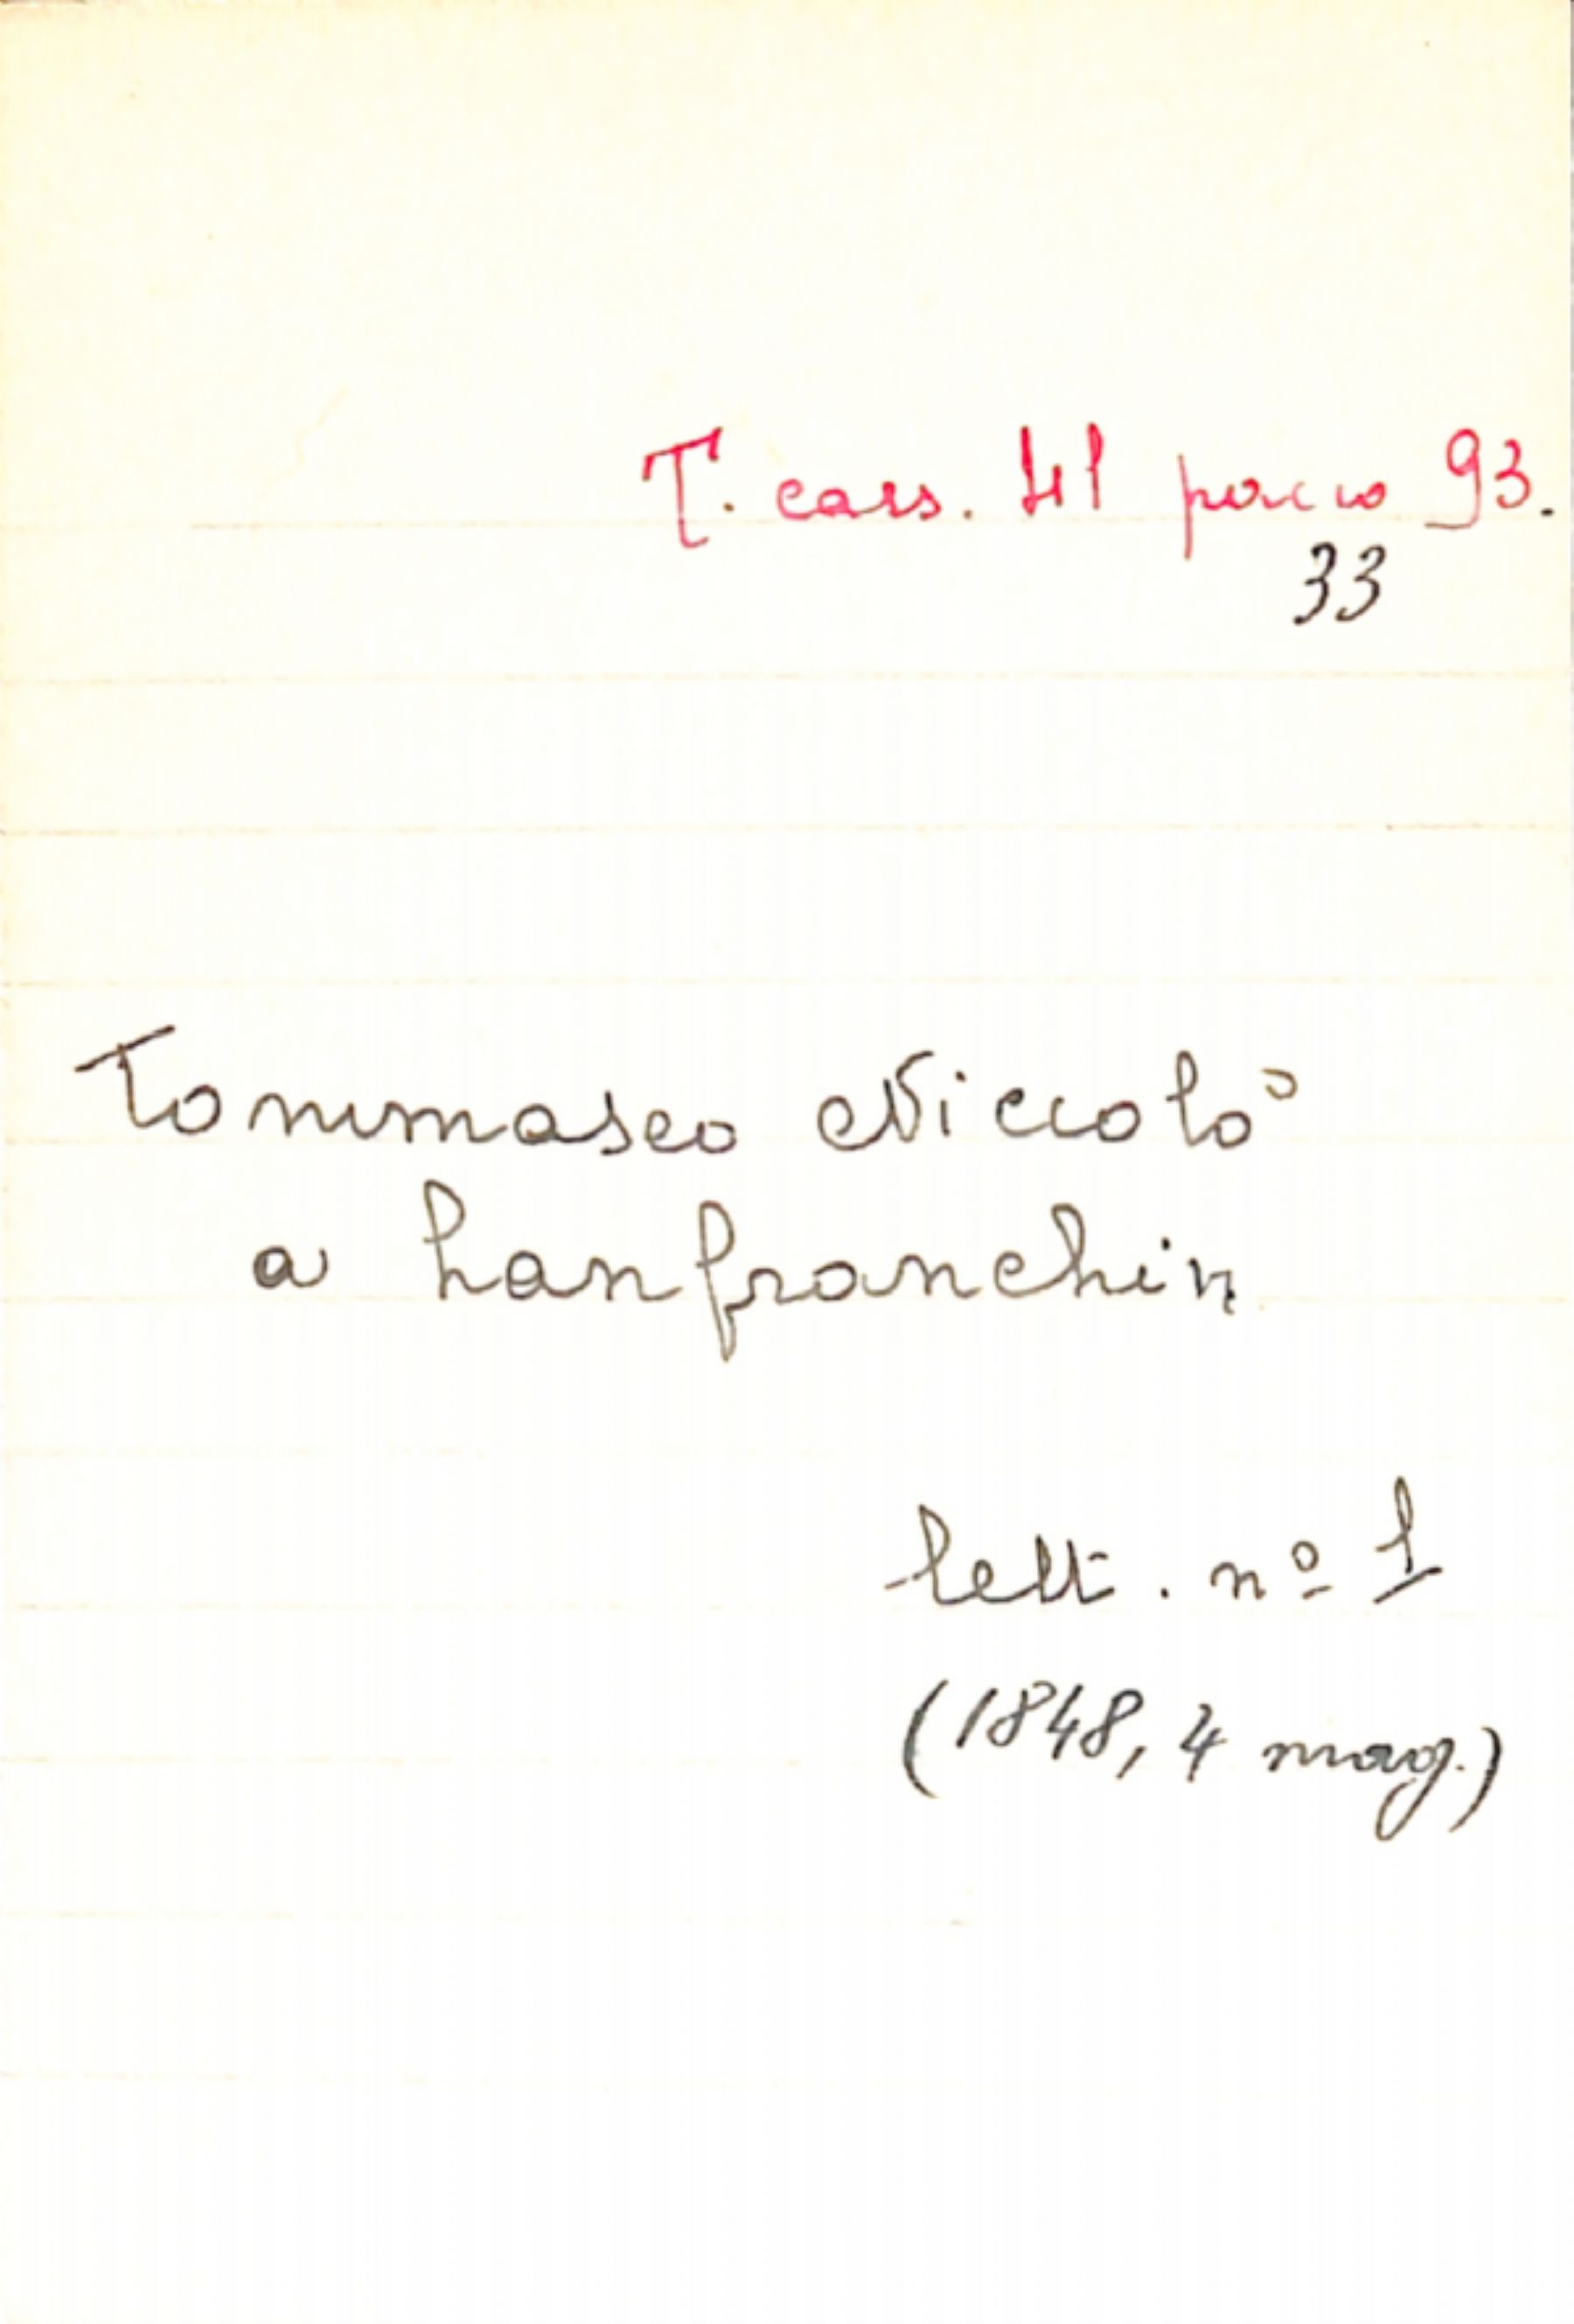 T. cass. 41 pacco 93.
33
Tommaseo Niccolò
a Lanfranchin
lett. nº 1
(1848, 4 mag.)